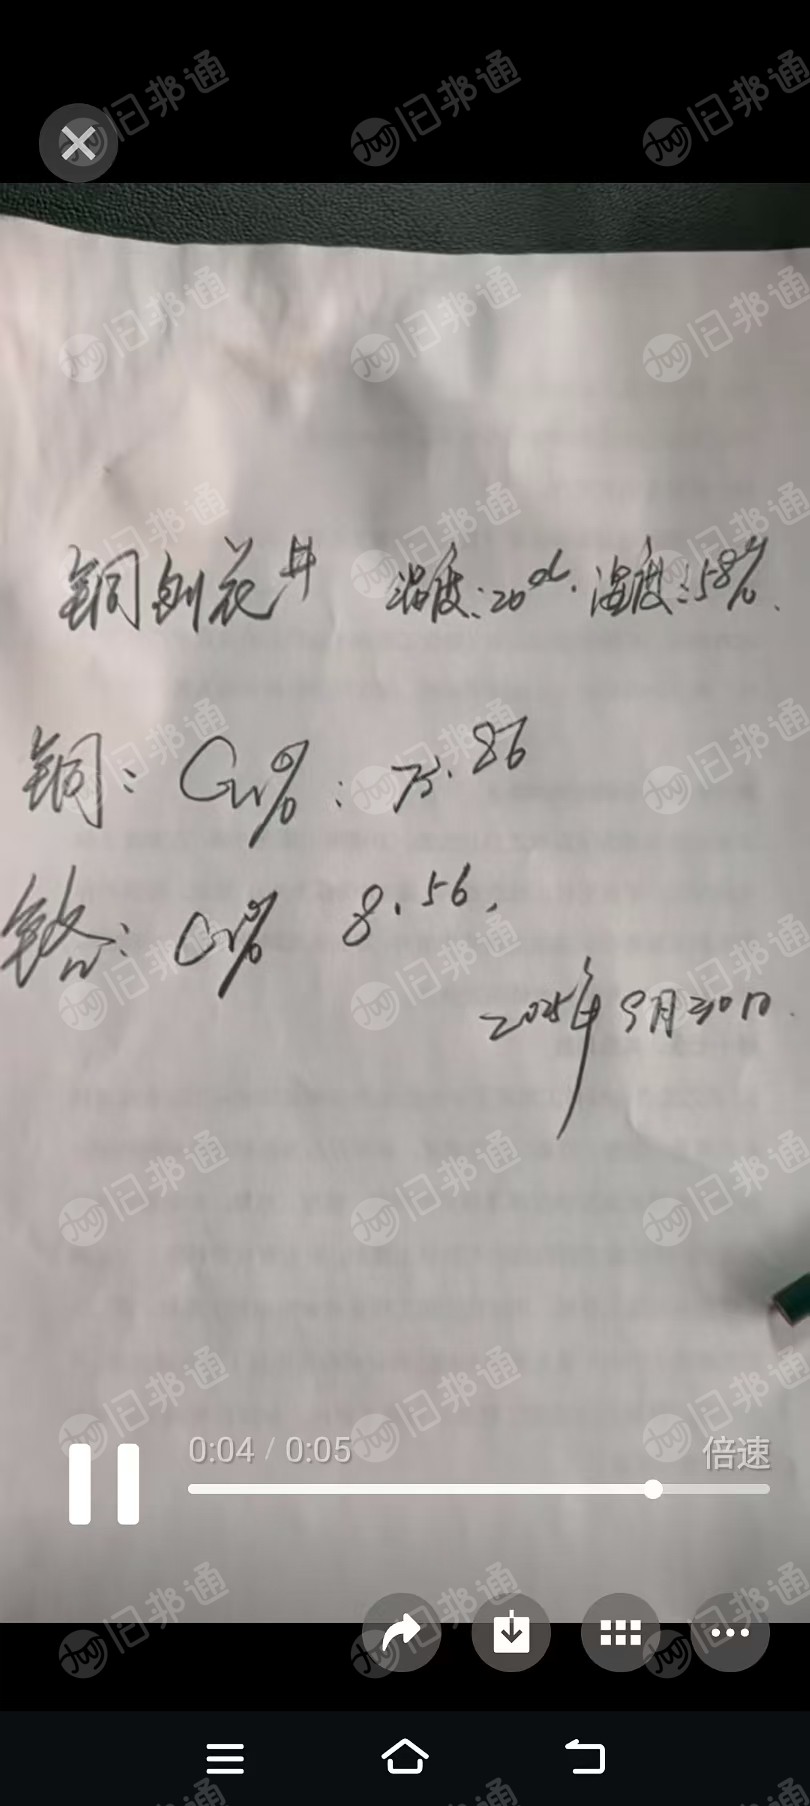 铜刨花# 温度:20℃. 湿度:58%.
铜: Cu%: 75.86
铬: Cr% 8.56.
2025年9月30日.
0:04 / 0:05
倍速
旧邦通